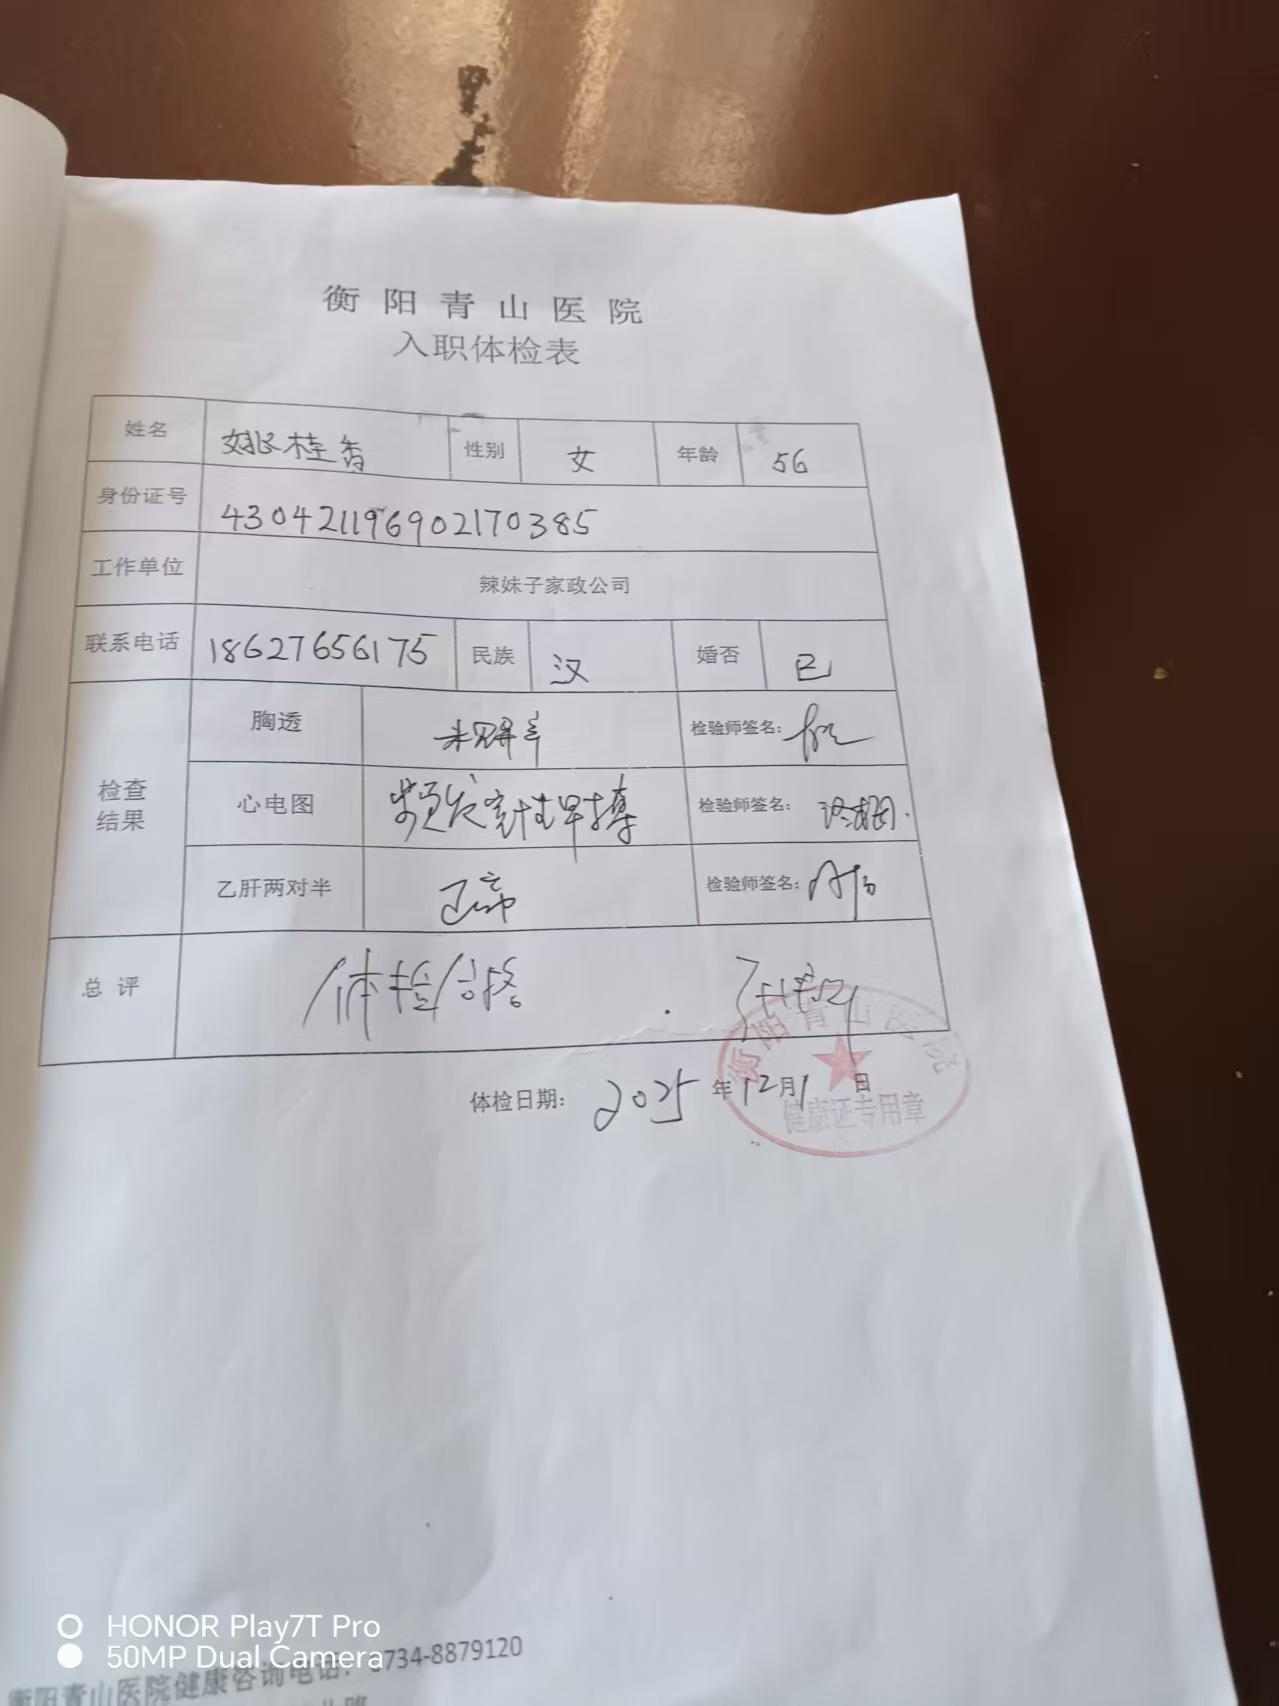 衡阳青山医院
入职体检表
姓名 姚桂香 性别 女 年龄 56
身份证号 430421196902170385
工作单位 辣妹子家政公司
联系电话 18627656175 民族 汉 婚否 已
检查结果 胸透 未见异常 检验师签名:
心电图 频发室性早搏 检验师签名:
乙肝两对半 正常 检验师签名:
总评 体检合格
衡阳青山医院
健康证专用章
体检日期: 2025年12月1日
HONOR Play7T Pro
50MP Dual Camera
衡阳青山医院健康咨询电话: 0734-8879120